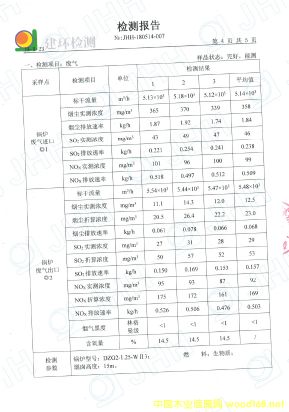 检测报告
№:JHH-180514-007
建环检测
第 4 页 共 5 页
一、检测项目:废气
样品状态:完好,能测
采样点 检测项目 单位 检测结果
1 2 3 平均值
锅炉废气进口 ◎1
标干流量 m³/h 5.13×10³ 5.18×10³ 5.12×10³ 5.14×10³
烟尘实测浓度 mg/m³ 365 370 339 358
烟尘排放速率 kg/h 1.87 1.92 1.74 1.84
SO₂实测浓度 mg/m³ 43 49 47 46
SO₂排放速率 kg/h 0.221 0.254 0.241 0.238
NOₓ实测浓度 mg/m³ 101 96 100 99
NOₓ排放速率 kg/h 0.518 0.497 0.512 0.509
锅炉废气出口 ◎2
标干流量 m³/h 5.54×10³ 5.44×10³ 5.47×10³ 5.48×10³
烟尘实测浓度 mg/m³ 11.1 14.3 12.0 12.5
烟尘折算浓度 mg/m³ 20.5 26.4 22.2 23.0
烟尘排放速率 kg/h 0.061 0.078 0.066 0.068
SO₂实测浓度 mg/m³ 27 31 28 29
SO₂折算浓度 mg/m³ 50 57 52 53
SO₂排放速率 kg/h 0.150 0.169 0.153 0.157
NOₓ实测浓度 mg/m³ 95 93 87 92
NOₓ折算浓度 mg/m³ 175 172 161 169
NOₓ排放速率 kg/h 0.526 0.506 0.476 0.503
烟气黑度 林格曼级 <1 <1 <1 <1
含氧量 % 14.5 14.5 14.5 /
检测参数
锅炉型号:DZG2-1.25-WⅡ3; 燃 料:生物质;
烟囱高度:15m。
中国木业信息网
wood168.net